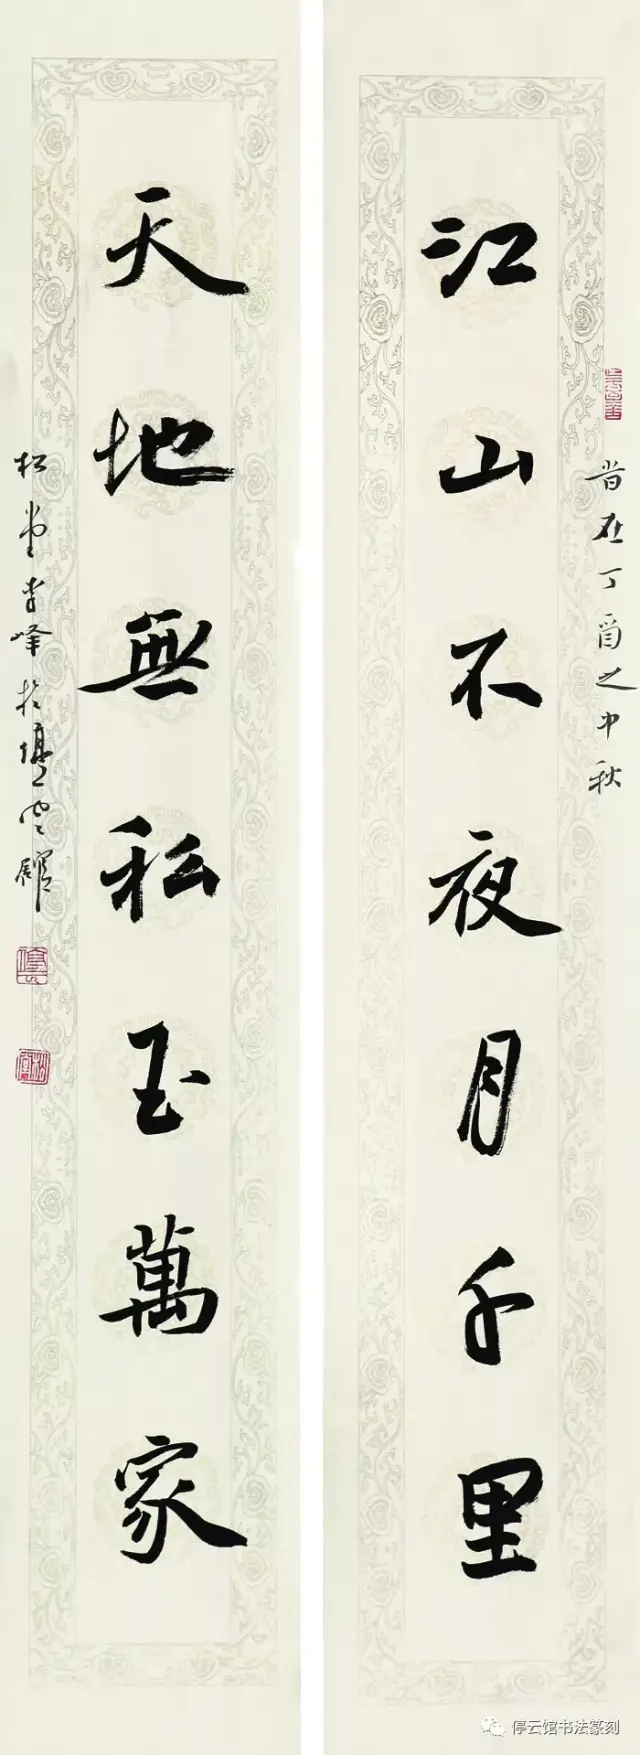 江山不夜月千里
天地無私玉萬家
時在丁酉之中秋
松堂李峰於停雲館
停云馆书法篆刻